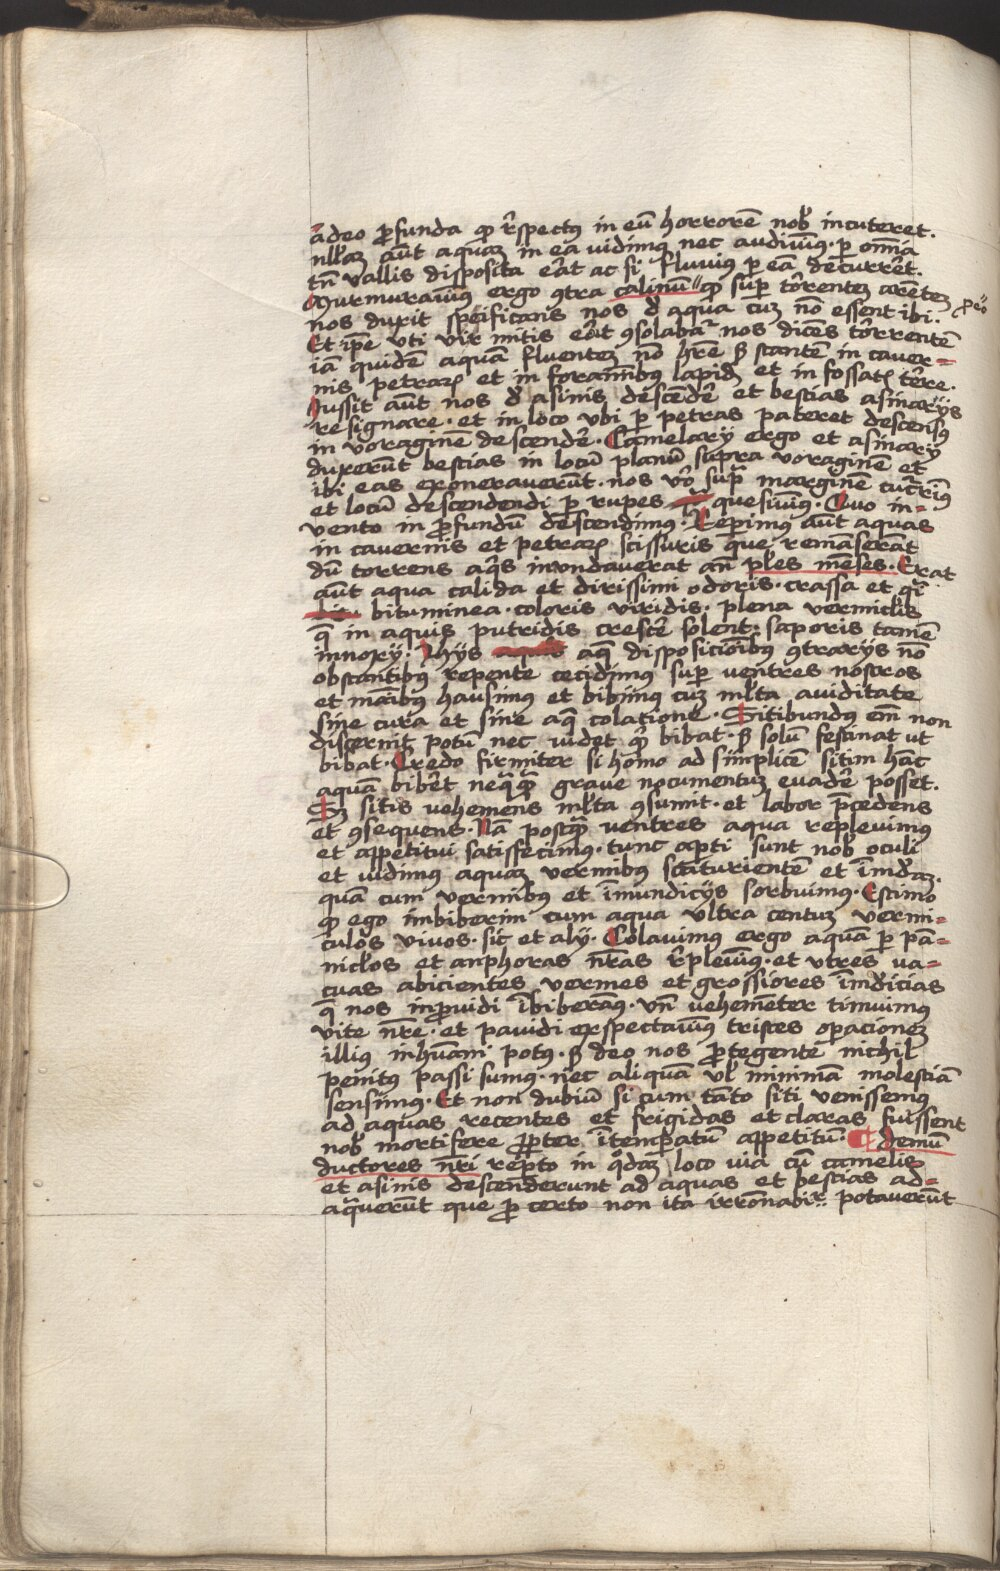 adeo ꝓfunda ꝙ r̄spectꝯ in eū horrorē nob̄ incuteret.
nll̄az aūt aquaz in ea vidimꝯ nec audiuimꝯ · ꝑ om̄ia
tn̄ vallis disposita er̄at ac si fluvius ꝑ eā decurrēt.
Murmurauimꝯ ergo ꝯtra calinū ꝙ suꝑ torrentez arētez
nos duxit sp̄eificans nos ꝺ aqua cuz nō essent ibi ·
Et ip̄e vti vir mitis er̄at ꝯsolabaʳ nos dicēs torrentē
iā quidē aquā fluentez nō hr̄e sꝫ stantē in cauer=
nis petraꝝ et in foraminibꝯ lapidꝫ et in fossatꝫ tr̄re.
Jussit aūt nos ꝺ asinis descēder̄ et bestias asinarijs
resignare · et in loco vbi ꝑ petras pateret descensꝯ
in voraginē descender̄ · Camelarij ergo et asinarij
duxerūt bestias in locū planū supra voraginē et
ibi eas exonerauerūt · nos vͦ supᵃ marginē
et locū descendendi ꝑ rupes quesiuimꝯ · Quo in=
vento in ꝓfundū descendimꝯ · Repimꝯ aūt aquas
in cauernis et petraꝝ scissuris que remāserāt
dū torrens aqⁱs inundauerat an̄ pl̄es mēses · Erat
aūt aqua calida et dirissimi odoris · crassa et qⁱ
bituminea · coloris viridis · plena vermicl̄is
q̄ in aquis putridis crescē solent · saporis tamē
innoxij · Hijs aqᵉ disposicionibꝯ ꝯtrarijs nō
obstantibꝯ repente cecidimꝯ suꝑ ventres nostros
et manibꝯ hausimꝯ et bibimꝯ cuz ml̄ta auiditate
sine cura et sine aqᵉ colatione · Sitibundꝯ em̄ non
discernit potū nec videt qⁱ bibat · sꝫ solū festinat ut
bibat · Credo firmiter si homo ad simplicē sitim hāc
aquā biberet neqᵃqᵃ graue nocumentuz euader̄ posset.
Sꝫ sitis vehemens ml̄ta ꝯsumit · et labor p̄cedens
et ꝯsequens · Nā postqᵃ ventres aqua repleuimꝯ
et appetitui satisfecimꝯ · tunc apti sunt nob̄ oculi
et vidimꝯ aquaz vermibꝯ scaturientē et īmūdaz.
quā cum vermibꝯ et īmundicijs sorbuimꝯ · Estimo
ꝙ ego imbiberim cum aqua vltra centuz vermi=
culos vivos · sic et alij · Colauimꝯ ergo aquā ꝑ pā=
nicl̄os et anphoras nr̄as r̄pleuimꝯ · et vtres va=
cuas abicientes vermes et grossiores īmūdicias
q̄ nos inꝓuidi ībiberamꝯ · vn̄ vehemēter timuimꝯ
vite nr̄e · et pauidi exspectauimꝯ tristes oꝑacionez
illiꝯ inhūani potꝯ · sꝫ deo nos ꝓtegente nichil
penitꝯ passi sumꝯ · nec aliquā vl̄ minimā molestiā
sensimꝯ · Et non dubiū si cum tāto siti venissemꝯ
ad aquas recentes et frigidas et claras fuissent
nob̄ mortifere ꝓpter ītemꝑatū appetitū · ¶ demū
ductores nr̄i reꝑto in qͦdaz loco via cū camelis
et asinis descenderunt ad aquas et bestias ad=
aqᵃuerūt que ꝓ certo non ita potauerūt